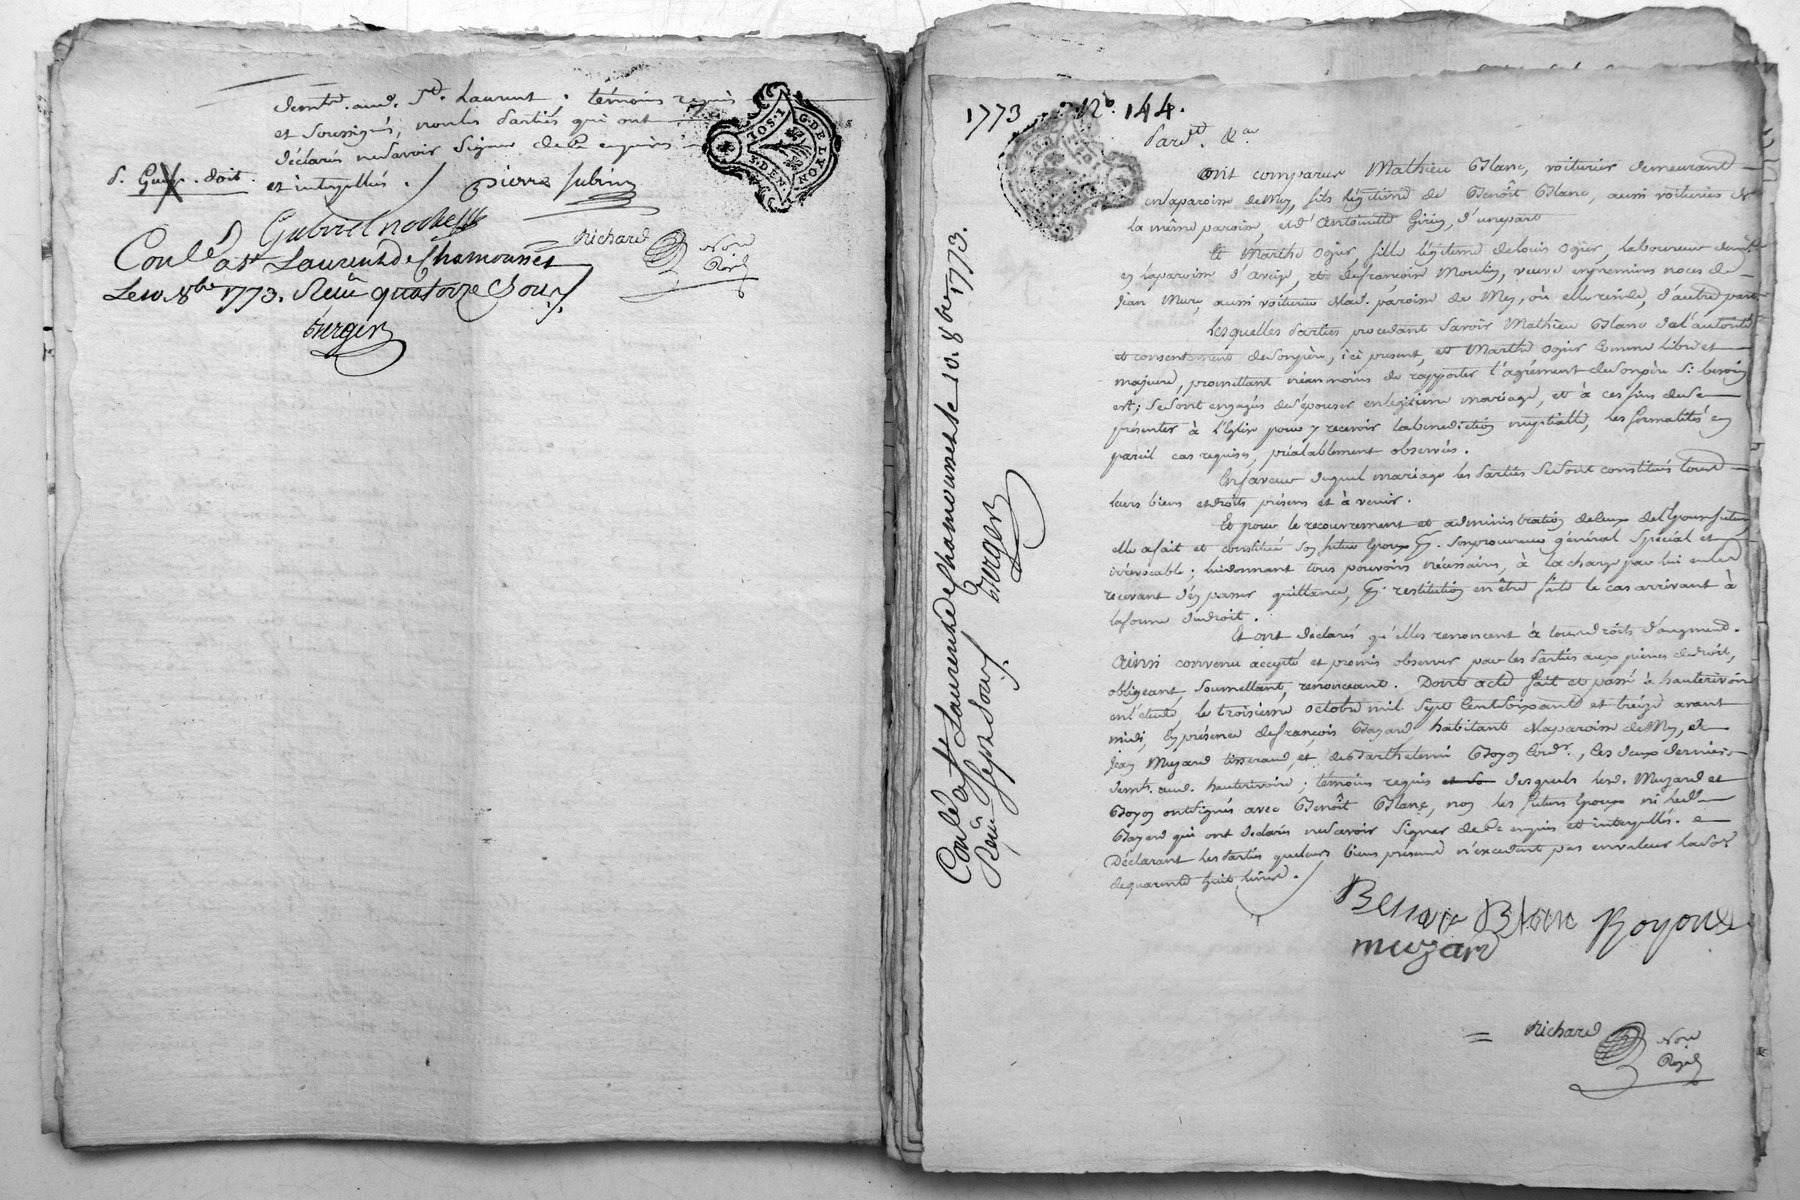 demt. aud. St. Laurent ; témoins requis
et soussignés, non les parties qui ont
déclarés ne savoir signer de ce enquis
et interpellés.
pierre subrin
Gabriel
Richard
Nore
Royal
Conlé a St Laurent de Chamousset
Le 10. 8bre 1773. Reçu quatorze sous
berger
G. DE LYON
1773 No. 144.
Pard. &a.
Ont comparus Mathieu Blanc, voiturier demeurant
en la paroisse de Mey, fils légitime de Benoît Blanc, aussi voiturier de
la même paroisse, et d'Antoinette Girin, d'une part
Et Marthe Ogier, fille légitime de Louis Ogier, laboureur demt.
en la paroisse d'aveize, et de françoise Moulin, veuve en premières noces de
Jean Mure, aussi voiturier de lad. paroisse de Mey, où elle réside, d'autre part
Lesquelles parties procédant savoir Mathieu Blanc de l'autorité
et consentement de son père, ici présent, et Marthe Ogier comme libre et
majeure, promettant néanmoins de rapporter l'agrément de son père si besoin
est ; se sont engagés de s'épouser en légitime mariage, et à ces fins de se
présenter à l'Eglise pour y recevoir la bénédiction nuptialle, les formalités en
pareil cas requises, préalablement observées.
En faveur duquel mariage les parties se sont constitués tous
leurs biens et droits présens et à venir.
Et pour le recouvrement et administration de ceux de l'épouse future
elle a fait et constitué son futur époux pr. son procureur général spécial et
irrévocable ; lui donnant tous pouvoirs nécessaires, à la charge par lui en les
recevant d'en passer quittance, pr. restitution en être faite le cas arrivant à
la forme du droit.
Et ont déclarés qu'elles renoncent à tous droits d'augment.
Ainsi convenu accepté et promis observer par les parties aux peines de droit,
obligeant, soumettant, renonceant. Dont acte fait et passé à hauterivoire
en l'étude, le troisième octobre mil sept cent soixante et treize avant
midi, en présence de françois Bayard habitant de la paroisse de Mey, et
Jean Muzard tisserand et de Barthelemi Boyon cordr., les deux derniers
demt. aud. hauterivoire ; témoins requis desquels led. Muzard et
Boyon ont signés avec Benoît Blanc, non les futurs époux ni led.
Bayard qui ont déclarés ne savoir signer de ce enquis et interpellés.
Déclarant les parties que leurs biens présens n'excedent pas en valeur la so.
de quarante huit livres.
Benoit Blanc Boyon
muzard
Richard
Nore
Royal
Conlé a St Laurent de Chamousset le 10. 8bre 1773.
Reçu sept sous
berger